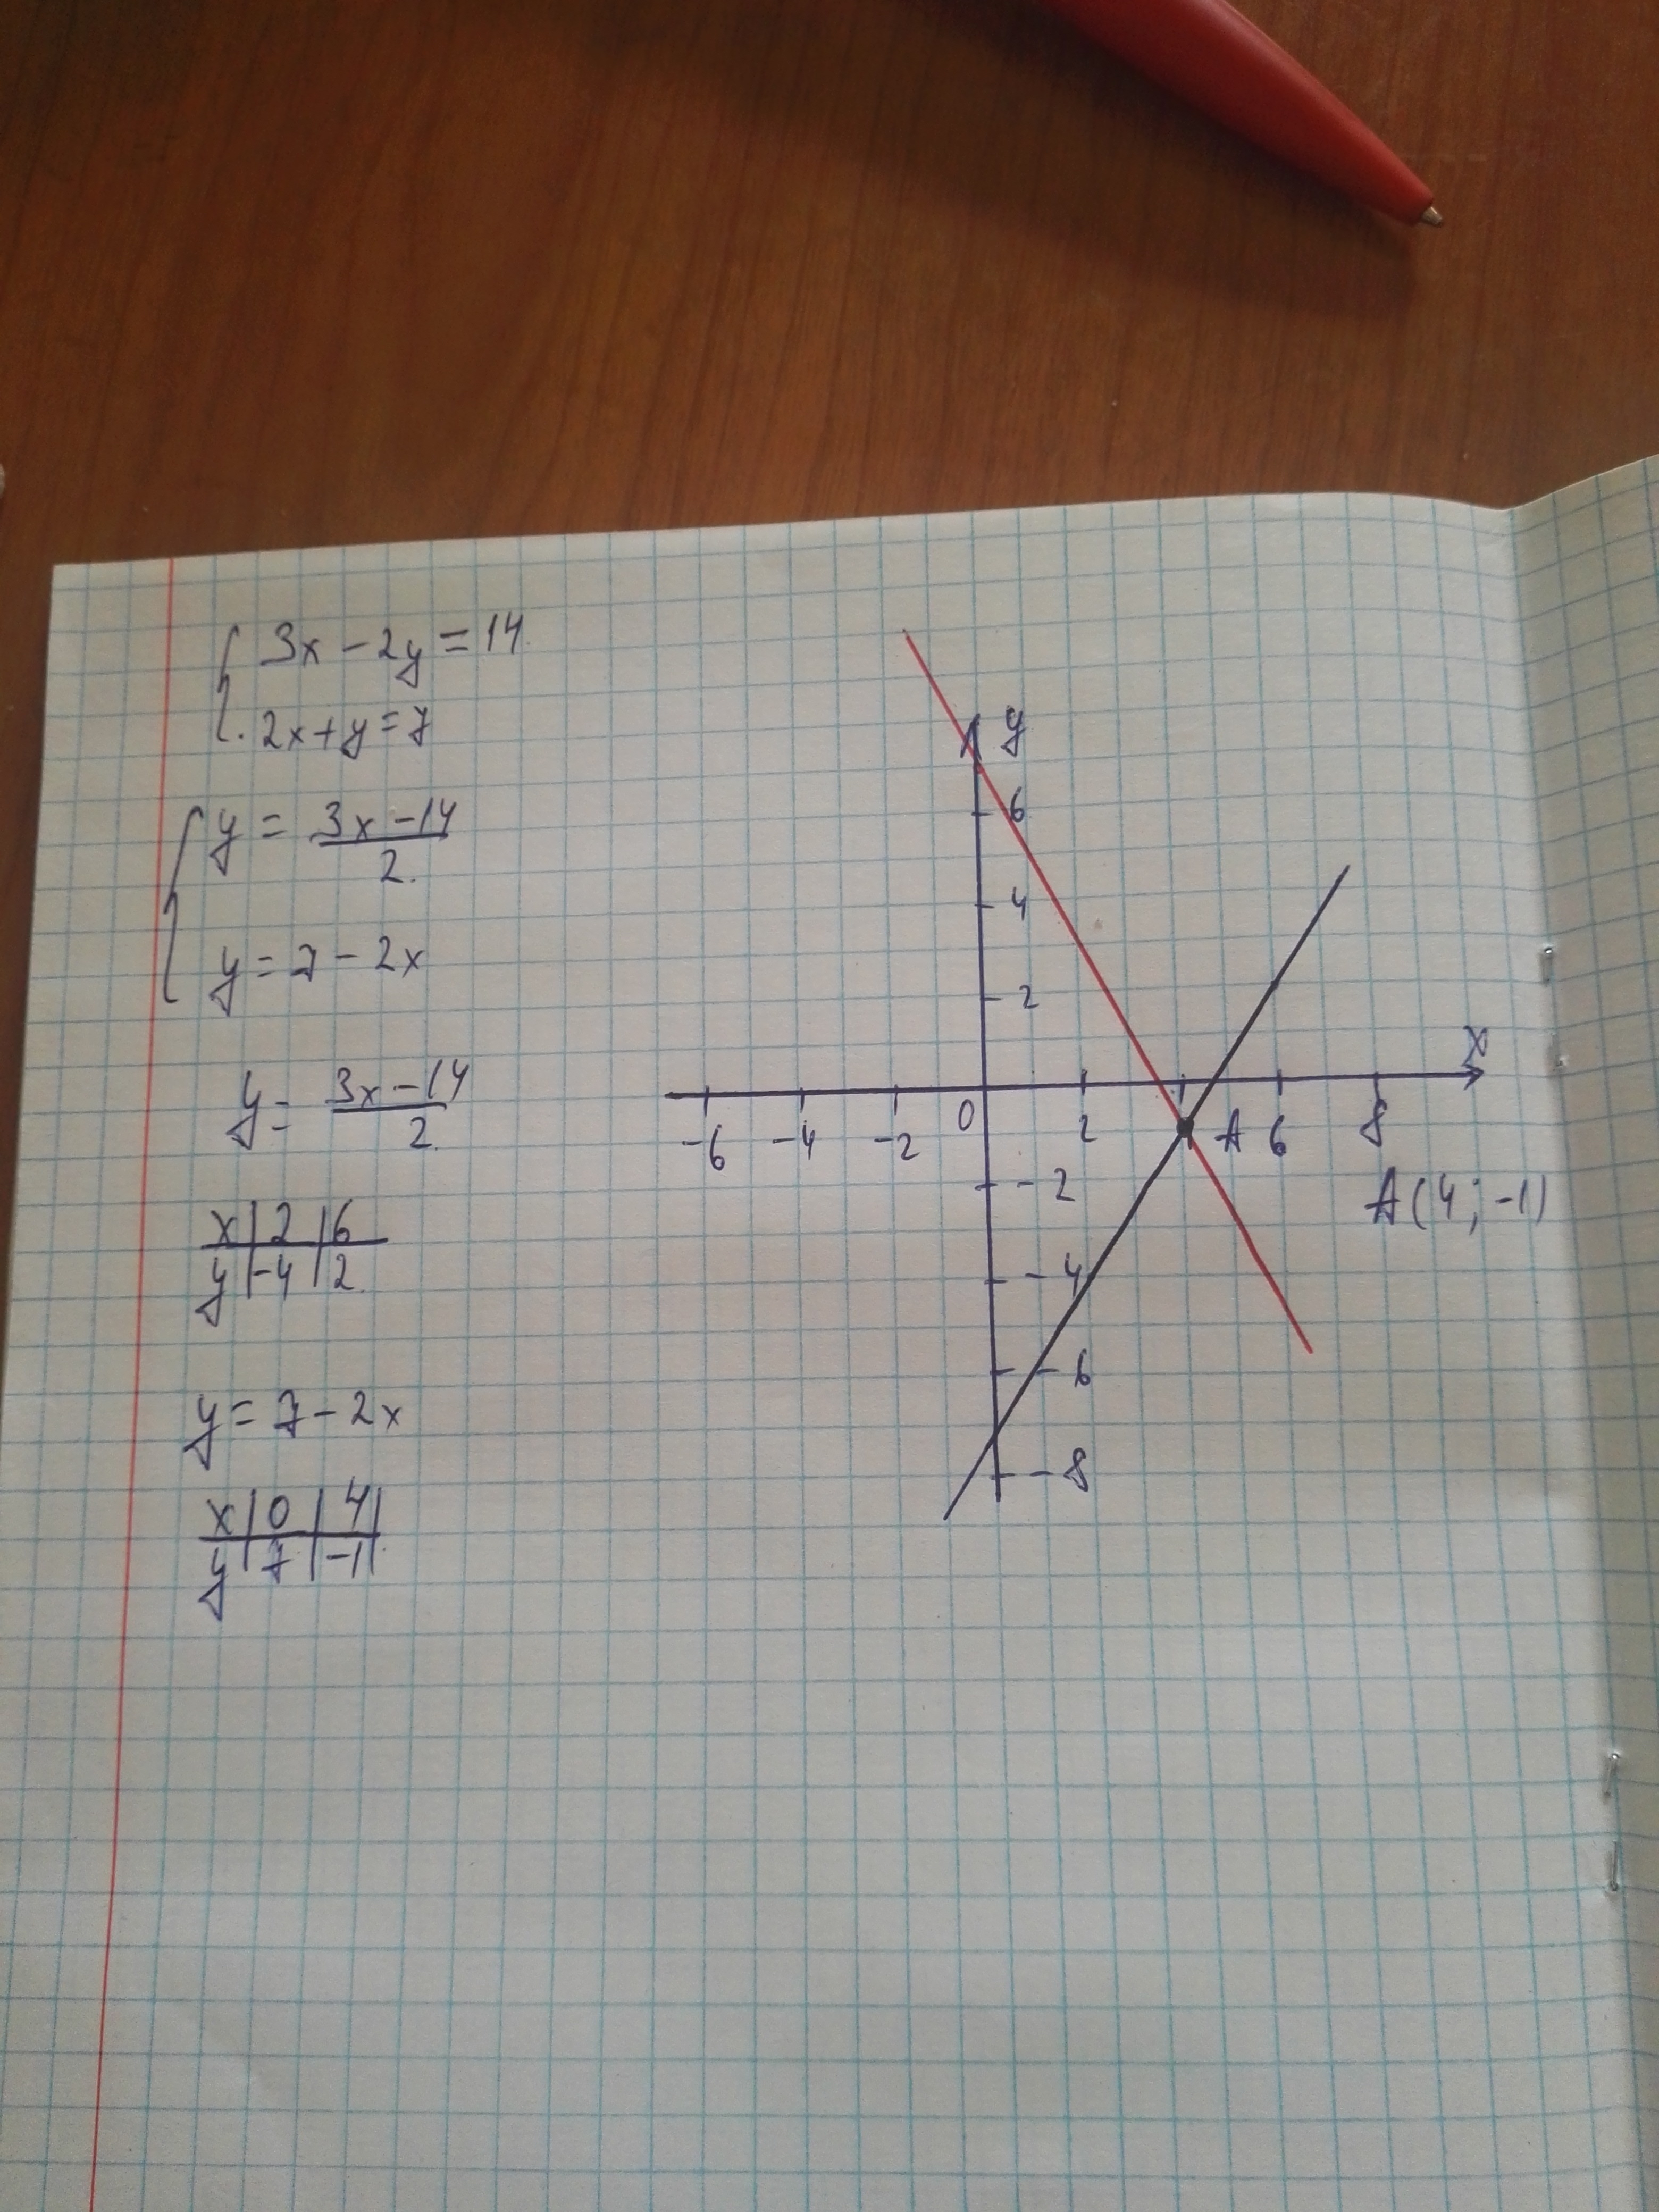 3x - 2y = 14
2x + y = 7
y = 3x - 14
2
y = 7 - 2x
y = 3x - 14
2
x | 2 | 6
y | -4 | 2
y = 7 - 2x
x | 0 | 4 |
y | 7 | -1 |
y
6
4
2
x
-6 -4 -2 0 2 A 6 8
-2
A(4; -1)
-4
-6
-8